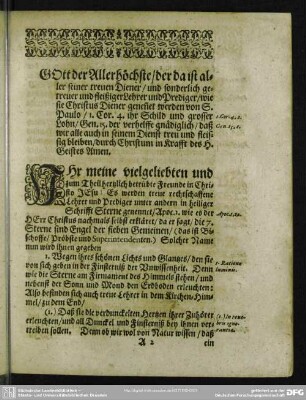 GOtt der Allerhöchste / der da ist al-
ler seiner treuen Diener / und sonderlich ge-
treuer und fleißiger Lehrer und Prediger / wie
sie Christus Diener genennet werden von S.
Paulo / 1. Cor. 4. ihr Schild und grosser
Lohn / Gen. 15. der verhelffe gnädiglich / daß
wir alle auch in seinem Dienst treu und fleis-
sig bleiben / durch Christum in Krafft des H.
Geistes Amen.
1. Cor. 4. 1.
Gen. 15. 1.
IHr meine vielgeliebten und
zum Theil herzlich betrübte Freunde in Chris-
to JEsu: Es werden treue rechtschaffene
Lehrer und Prediger unter andern in heiliger
Schrifft Sterne genennet / Apoc. 1. wie es der
HErr Christus nachmals selbst erkläret / da er sagt / die 7.
Sterne sind Engel der sieben Gemeinen / (das ist Bi-
schoffe / Pröbste und Superintendenten.) Solcher Nahm
nun wird ihnen gegeben
Apoc. 1. 20.
1. Wegen ihres schönen Lichts und Glanzes / den sie
von sich geben in der Finsterniß der Unwissenheit. Denn
wie die Sterne am Firmament des Himmels stehen / und
nebenst der Sonn und Mond den Erdboden erleuchten:
Also befinden sich auch treue Lehrer in dem Kirchen-Him-
mel / zu dem End /
1. Ratione
luminis.
(1.) Daß sie die verdunckelten Hertzen ihrer Zuhörer
erleuchten / und all Dunckel und Finsterniß bey ihnen ver-
treiben sollen. Denn ob wir wol von Natur wissen / daß
A 2 ein